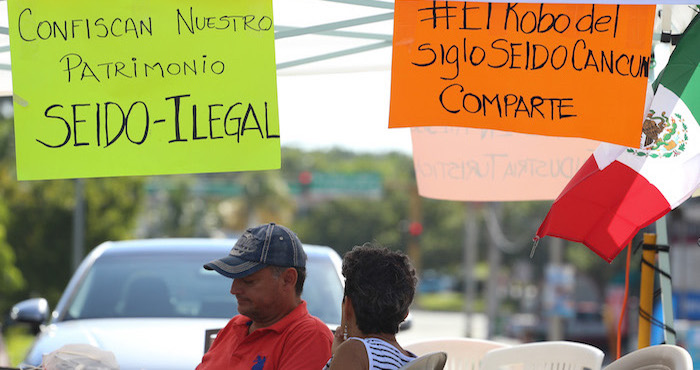 CONFISCAN NUESTRO
PATRIMONIO
SEIDO-ILEGAL
#El Robo del
siglo SEIDO CANCUN
COMPARTE
INDUSTRIA TURISTIC